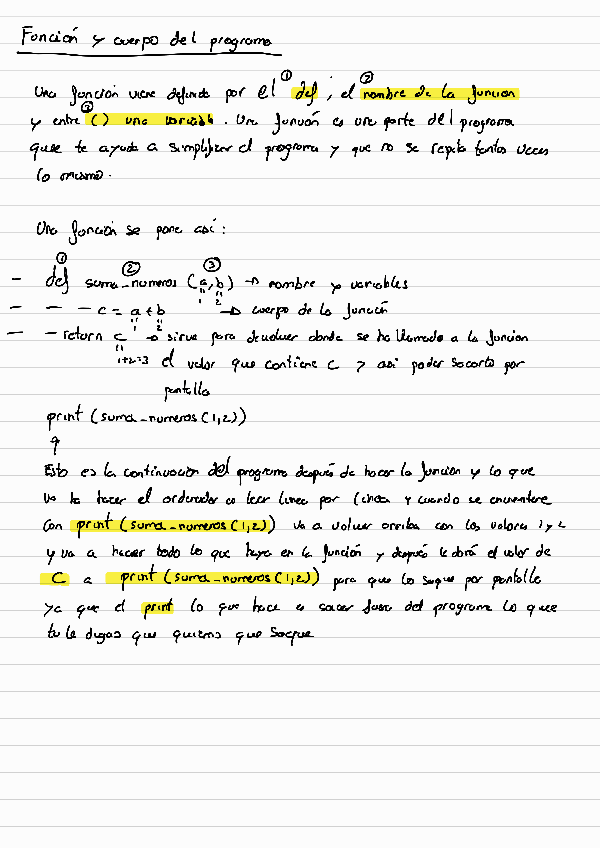 Función y cuerpo del programa
Una función viene definida por el ① def, el ② nombre de la funcion
y entre ③ () una variable. Una función es una parte del programa
que te ayuda a simplificar el programa y que no se repita tantas veces
lo mismo.
Una función se pone así:
① ② ③
- def suma_numeros (a,b) → nombre y variables
" " 1 2
- - - c = a + b → cuerpo de la función
" " 1 2
- - return c → sirve para devolver donde se ha llamado a la funcion
" 1+2=3 el valor que contiene c y asi poder sacarlo por
pantalla
print (suma_numeros (1,2))
↑
Esto es la continuación del programa después de hacer la función y lo que
va ha hacer el ordenador es leer linea por linea y cuando se encuentre
con print (suma_numeros (1,2)) va a volver arriba con los valores 1 y 2
y va a hacer todo lo que haya en la función y después le dará el valor de
C a print (suma_numeros (1,2)) para que lo saque por pantalla
ya que el print lo que hace es sacar fuera del programa lo que
tu le digas que quieres que saque